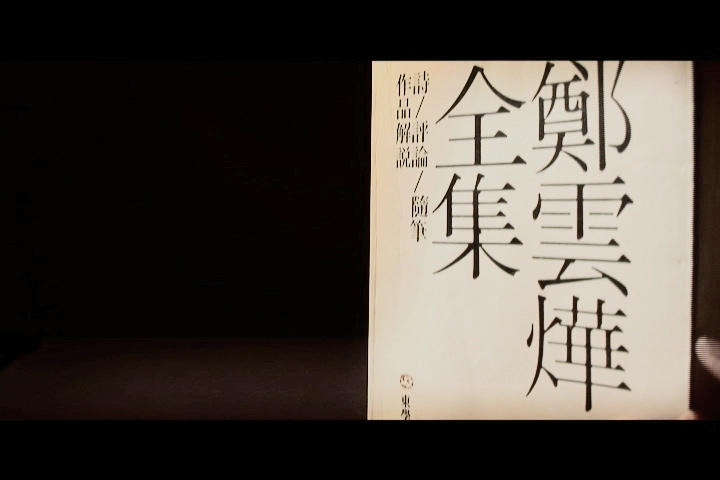 鄭雲燁
全集
詩/評論/隨筆
作品解說
東學